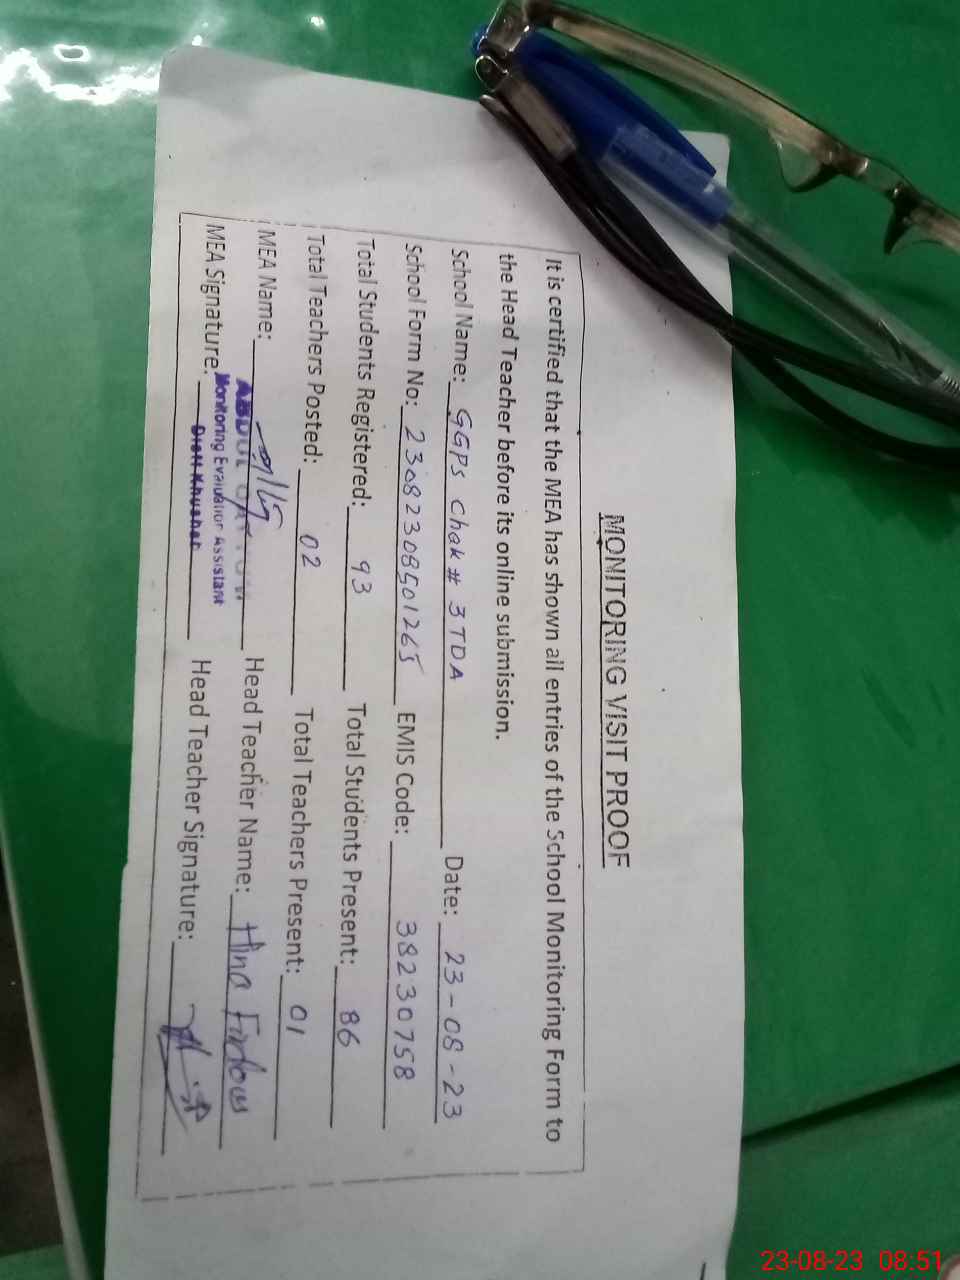 MONITORING VISIT PROOF
It is certified that the MEA has shown all entries of the School Monitoring Form to
the Head Teacher before its online submission.
School Name: GGPS Chak # 3 TDA Date: 23-08-23
School Form No: 23082308501265 EMIS Code: 38230758
Total Students Registered: 93 Total Students Present: 86
Total Teachers Posted: 02 Total Teachers Present: 01
MEA Name: ABDUL Head Teacher Name: Hina Firdous
Monitoring Evaluation Assistant
MEA Signature: Distt Khushab Head Teacher Signature:
23-08-23 08:51